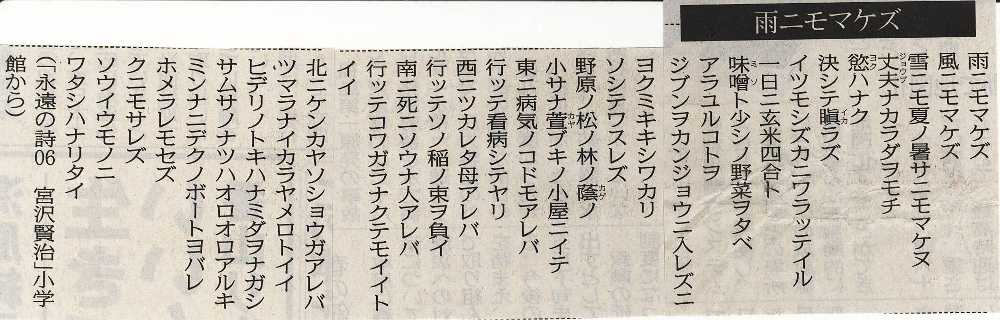 雨ニモマケズ
雨ニモマケズ
風ニモマケズ
雪ニモ夏ノ暑サニモマケヌ
丈夫ナカラダヲモチ
慾ハナク
決シテ瞋ラズ
イツモシズカニワラッテイル
一日ニ玄米四合ト
味噌ト少シノ野菜ヲタベ
アラユルコトヲ
ジブンヲカンジョウニ入レズニ
ヨクミキキシワカリ
ソシテワスレズ
野原ノ松ノ林ノ蔭ノ
小サナ萱ブキノ小屋ニイテ
東ニ病気ノコドモアレバ
行ッテ看病シテヤリ
西ニツカレタ母アレバ
行ッテソノ稲ノ束ヲ負イ
南ニ死ニソウナ人アレバ
行ッテコワガラナクテモイイト
イイ
北ニケンカヤソショウガアレバ
ツマラナイカラヤメロトイイ
ヒデリノトキハナミダヲナガシ
サムサノナツハオロオロアルキ
ミンナニデクノボートヨバレ
ホメラレモセズ
クニモサレズ
ソウイウモノニ
ワタシハナリタイ
(「永遠の詩06 宮沢賢治」小学
館から)